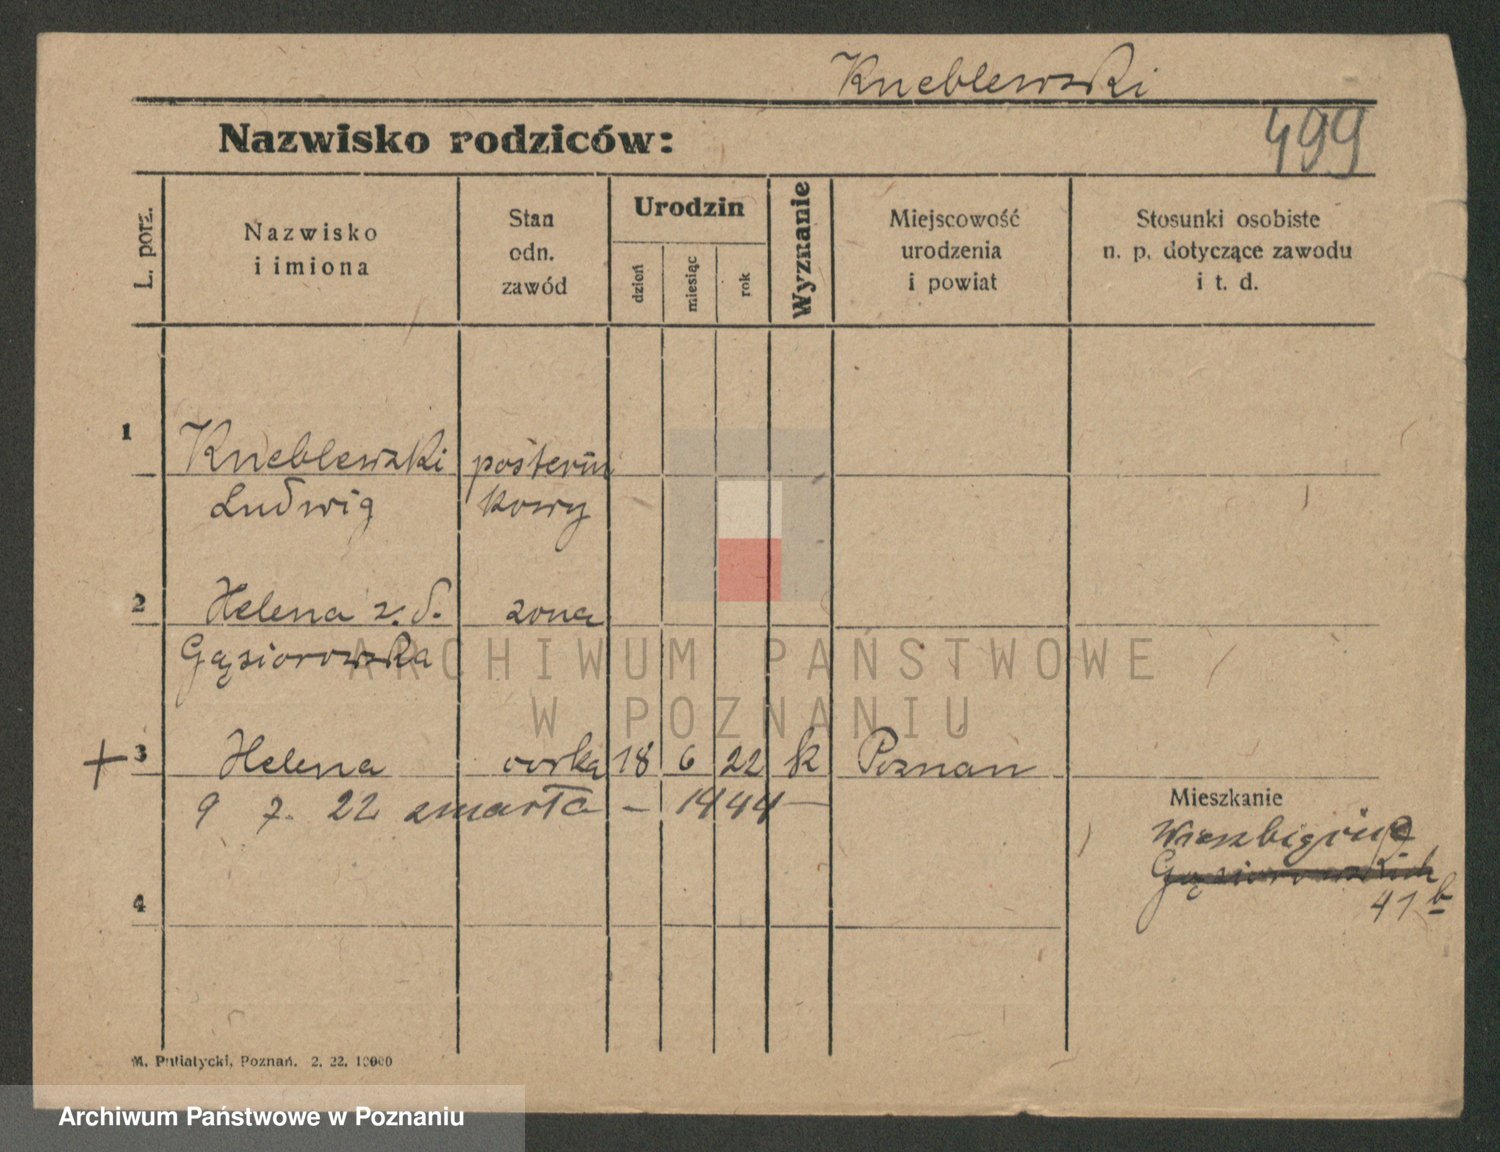 Kneblewski
499
Nazwisko rodziców:
L. porz.
Nazwisko
i imiona
Stan
odn.
zawód
Urodzin
dzień
miesiąc
rok
Wyznanie
Miejscowość
urodzenia
i powiat
Stosunki osobiste
n. p. dotyczące zawodu
i t. d.
1 Kneblewski posterun
Ludwig kowy
2 Helena z. d. zona
Gąsiorowska
ARCHIWUM PAŃSTWOWE
W POZNANIU
+ 3 Helena corka 18 6 22 k Poznan
9 7. 22 zmarła — 1444 —
Mieszkanie
Gąsiorowskich
41 b
4
M. Putiatycki, Poznań. 2. 22. 10000
Archiwum Państwowe w Poznaniu